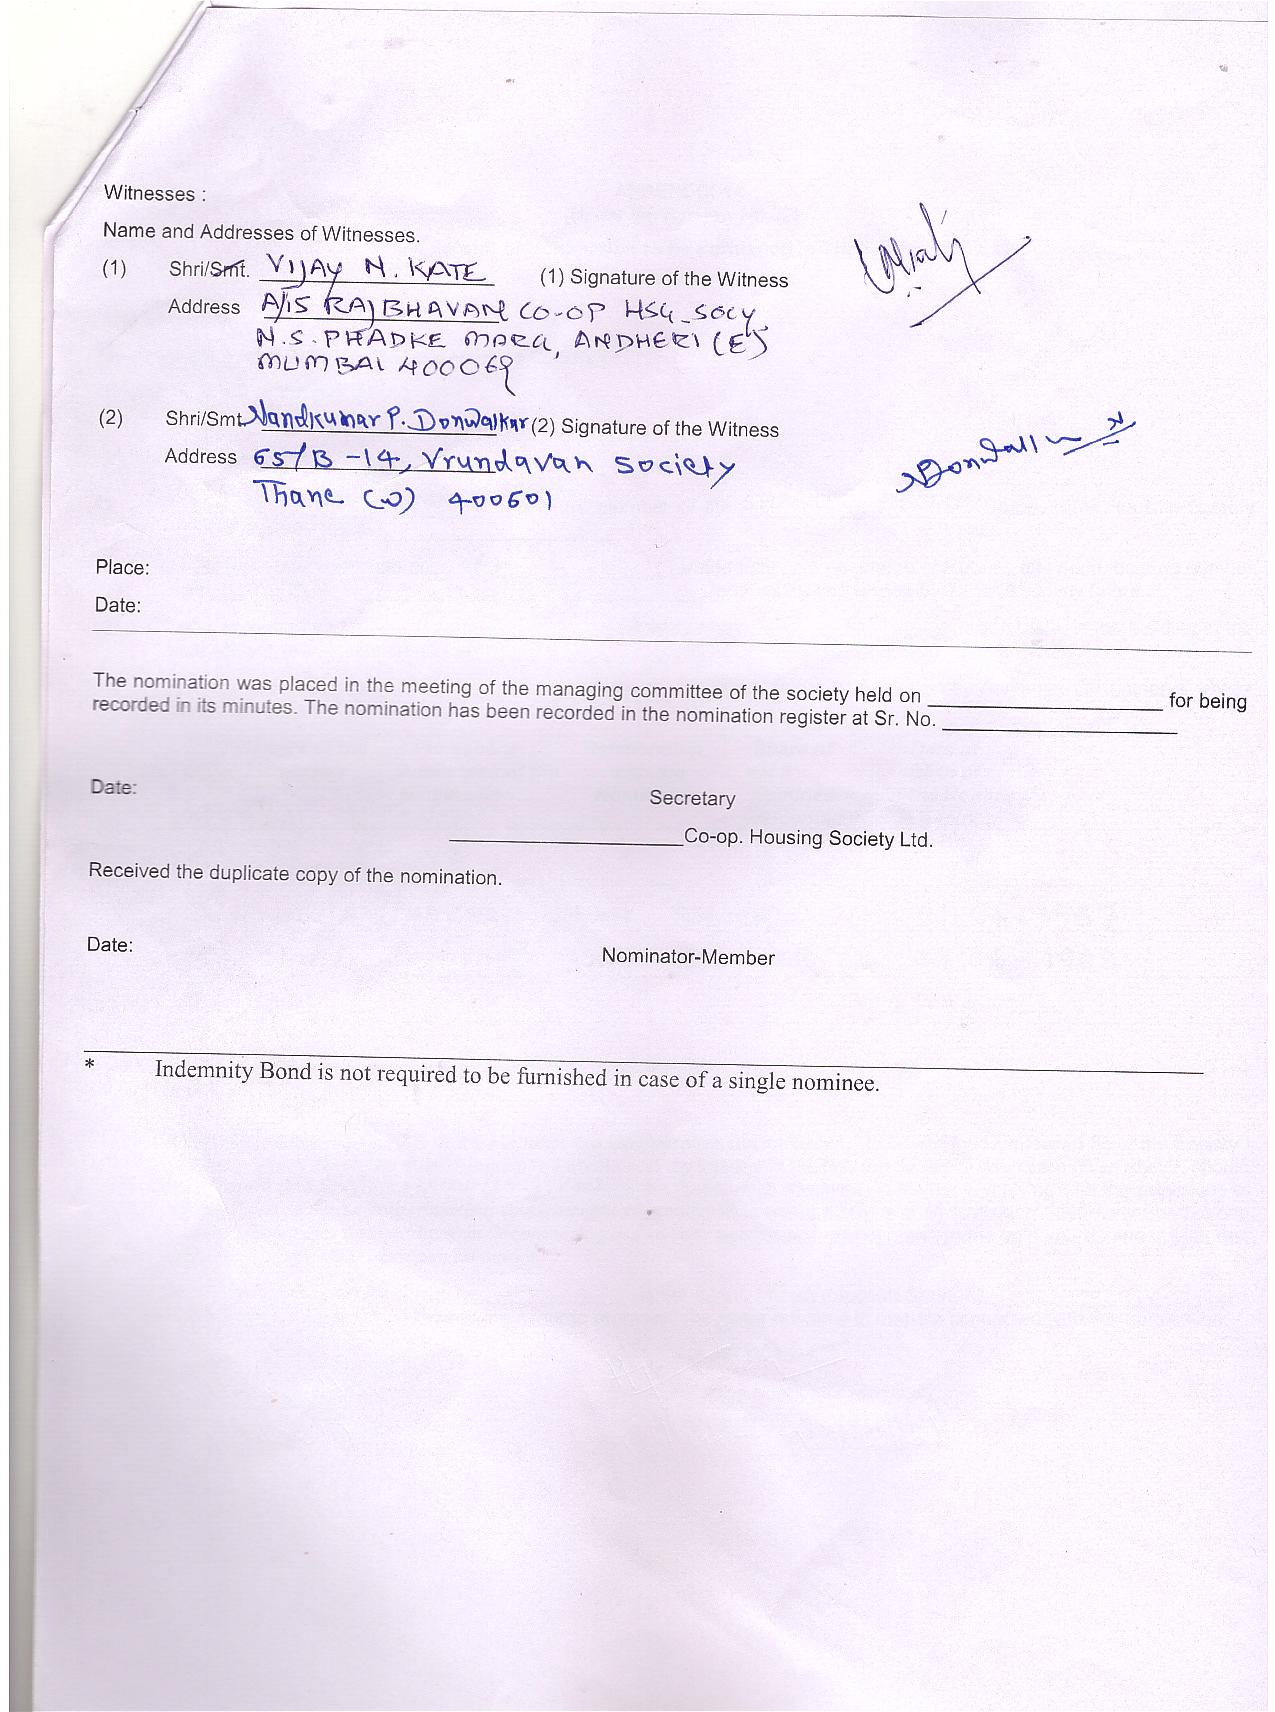 Witnesses :
Name and Addresses of Witnesses.
(1) Shri/Smt. VIJAY N. KATE (1) Signature of the Witness
Address A/15 RAJBHAVAN CO-OP HSG SOCY
N.S. PHADKE MARG, ANDHERI (E)
MUMBAI 400069
(2) Shri/Smt. Nandkumar P. Donwalkar (2) Signature of the Witness
Address 65/B-14, Vrundavan Society
Thane (W) 400601
Place:
Date:
The nomination was placed in the meeting of the managing committee of the society held on ____________________ for being
recorded in its minutes. The nomination has been recorded in the nomination register at Sr. No. ____________________
Date:
Secretary
____________________Co-op. Housing Society Ltd.
Received the duplicate copy of the nomination.
Date:
Nominator-Member
* Indemnity Bond is not required to be furnished in case of a single nominee.